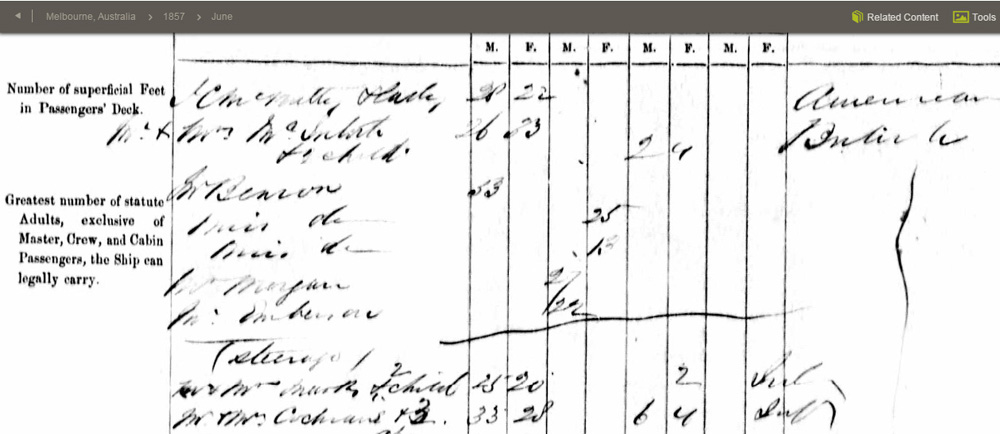 Melbourne, Australia > 1857 > June Related Content Tools
M. F. M. F. M. F. M. F.
Number of superficial Feet
in Passengers' Deck.
& Lady 28 22 American
Mr & Mrs 26 23 British
& child 2 4
Greatest number of statute
Adults, exclusive of
Master, Crew, and Cabin
Passengers, the Ship can
legally carry.
Mr Benson 53
Miss do 25
Miss do 13
Mr Morgan 27
Mr Emberson 22
(Steerage)
Mr & Mrs & 2 child 25 20 2 Inf
Mr & Mrs Cochrane & 3. 33 28 6 4 Inf